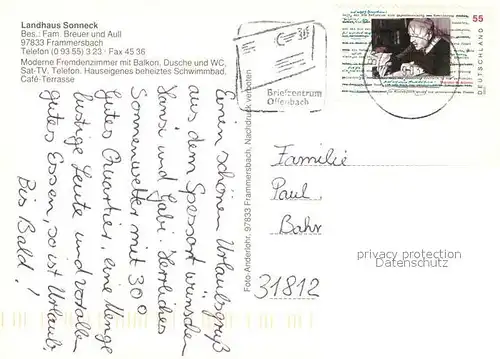 Landhaus Sonneck
Bes.: Fam. Breuer und Aull
97833 Frammersbach
Telefon (0 93 55) 3 23 · Fax 45 36
Moderne Fremdenzimmer mit Balkon, Dusche und WC,
Sat-TV, Telefon. Hauseigenes beheiztes Schwimmbad,
Café-Terrasse
Einen schönen Urlaubsgruß
aus dem Spessart wünschen
Hansi und Gabi. Herrliches
Sonnenwetter mit 30°
gutes Quartier, eine Menge
lustige Leute und vor allem
gutes Essen, so ist Urlaub.
Bis Bald!
Foto-Anderlohr, 97833 Frammersbach, Nachdruck verboten
Briefzentrum
Offenbach
55
DEUTSCHLAND
Familie
Paul
Bahr
31812
privacy protection
Datenschutz